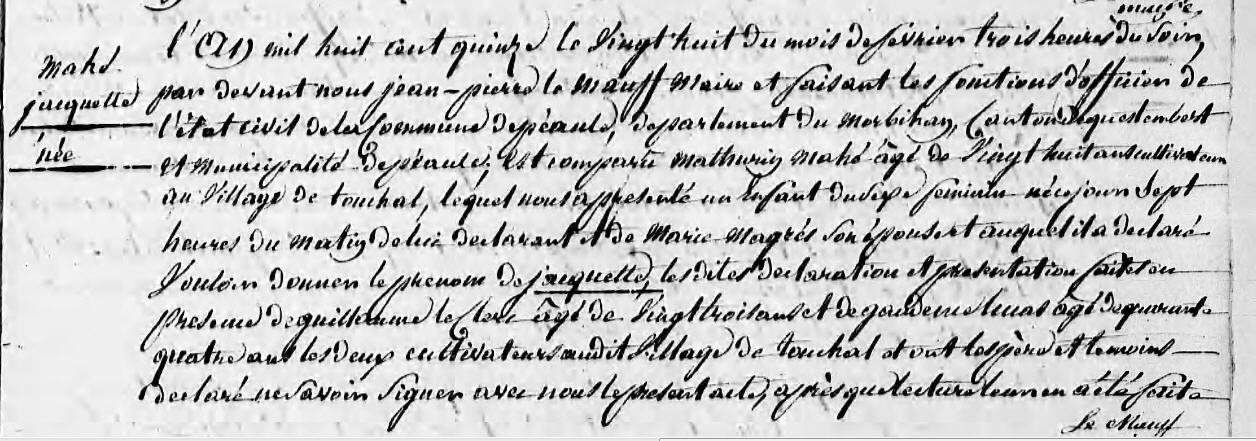 Mahé
jacquette
née
l'an mil huit cent quinze le Vingt huit du mois de fevrier trois heures du soir,
par devant nous jean-pierre le Mauff Maire et faisant les fonctions d'officier de
l'état civil de la Commune de péaule, departement du Morbihan, Canton de questembert
et Municipalité de péaule, est comparu Mathurin Mahé âgé de Vingt huit ans cultivateur
au Village de touchal, lequel nous a presenté un Enfant du sexe feminin née ce jour Sept
heures du Matin de lui declarant et de Marie Magrés son épouse et auquel il a declaré
Vouloir donner le prenom de jacquette, les dites declaration et presentation faites en
presence de guillaume le Clerc âgé de Vingt trois ans et de lucas âgé de quarante
quatre ans les deux cultivateurs audit Village de touchal et ont les père et temoins
declaré ne savoir Signer avec nous le present acte, après que lecture leur en a été faite
Le Mauff